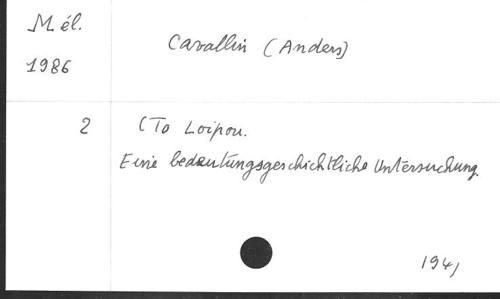 Mél.
1986
Cavallin (Anders)
2
(To Loipon.
Eine bedeutungsgeschichtliche Untersuchung.
1941